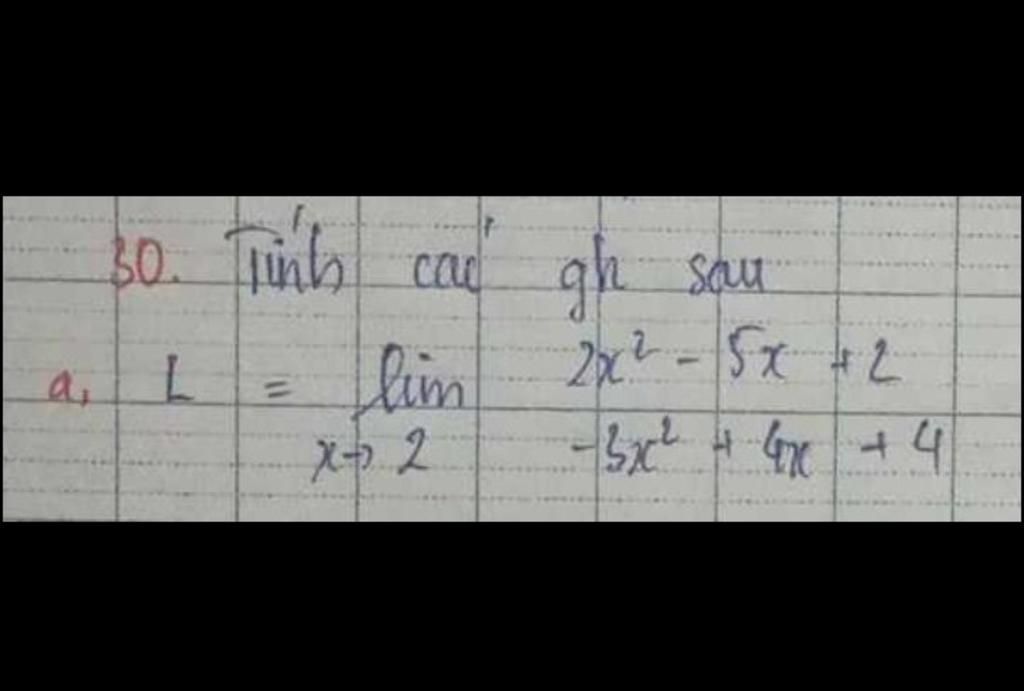 30. Tính các gh sau
a, L = lim 2x² - 5x + 2
x→2 -3x² + 4x + 4